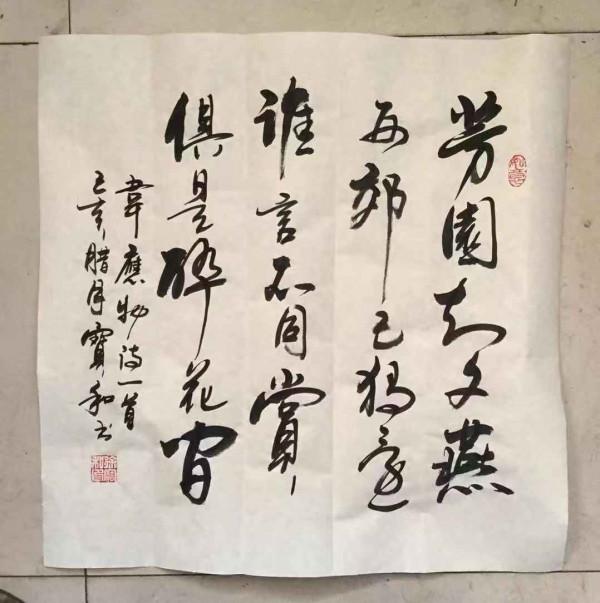 芳園知夕燕
西郊已獨還
誰言不同賞
俱是醉花間
韋應物诗一首
己亥腊月寶和书